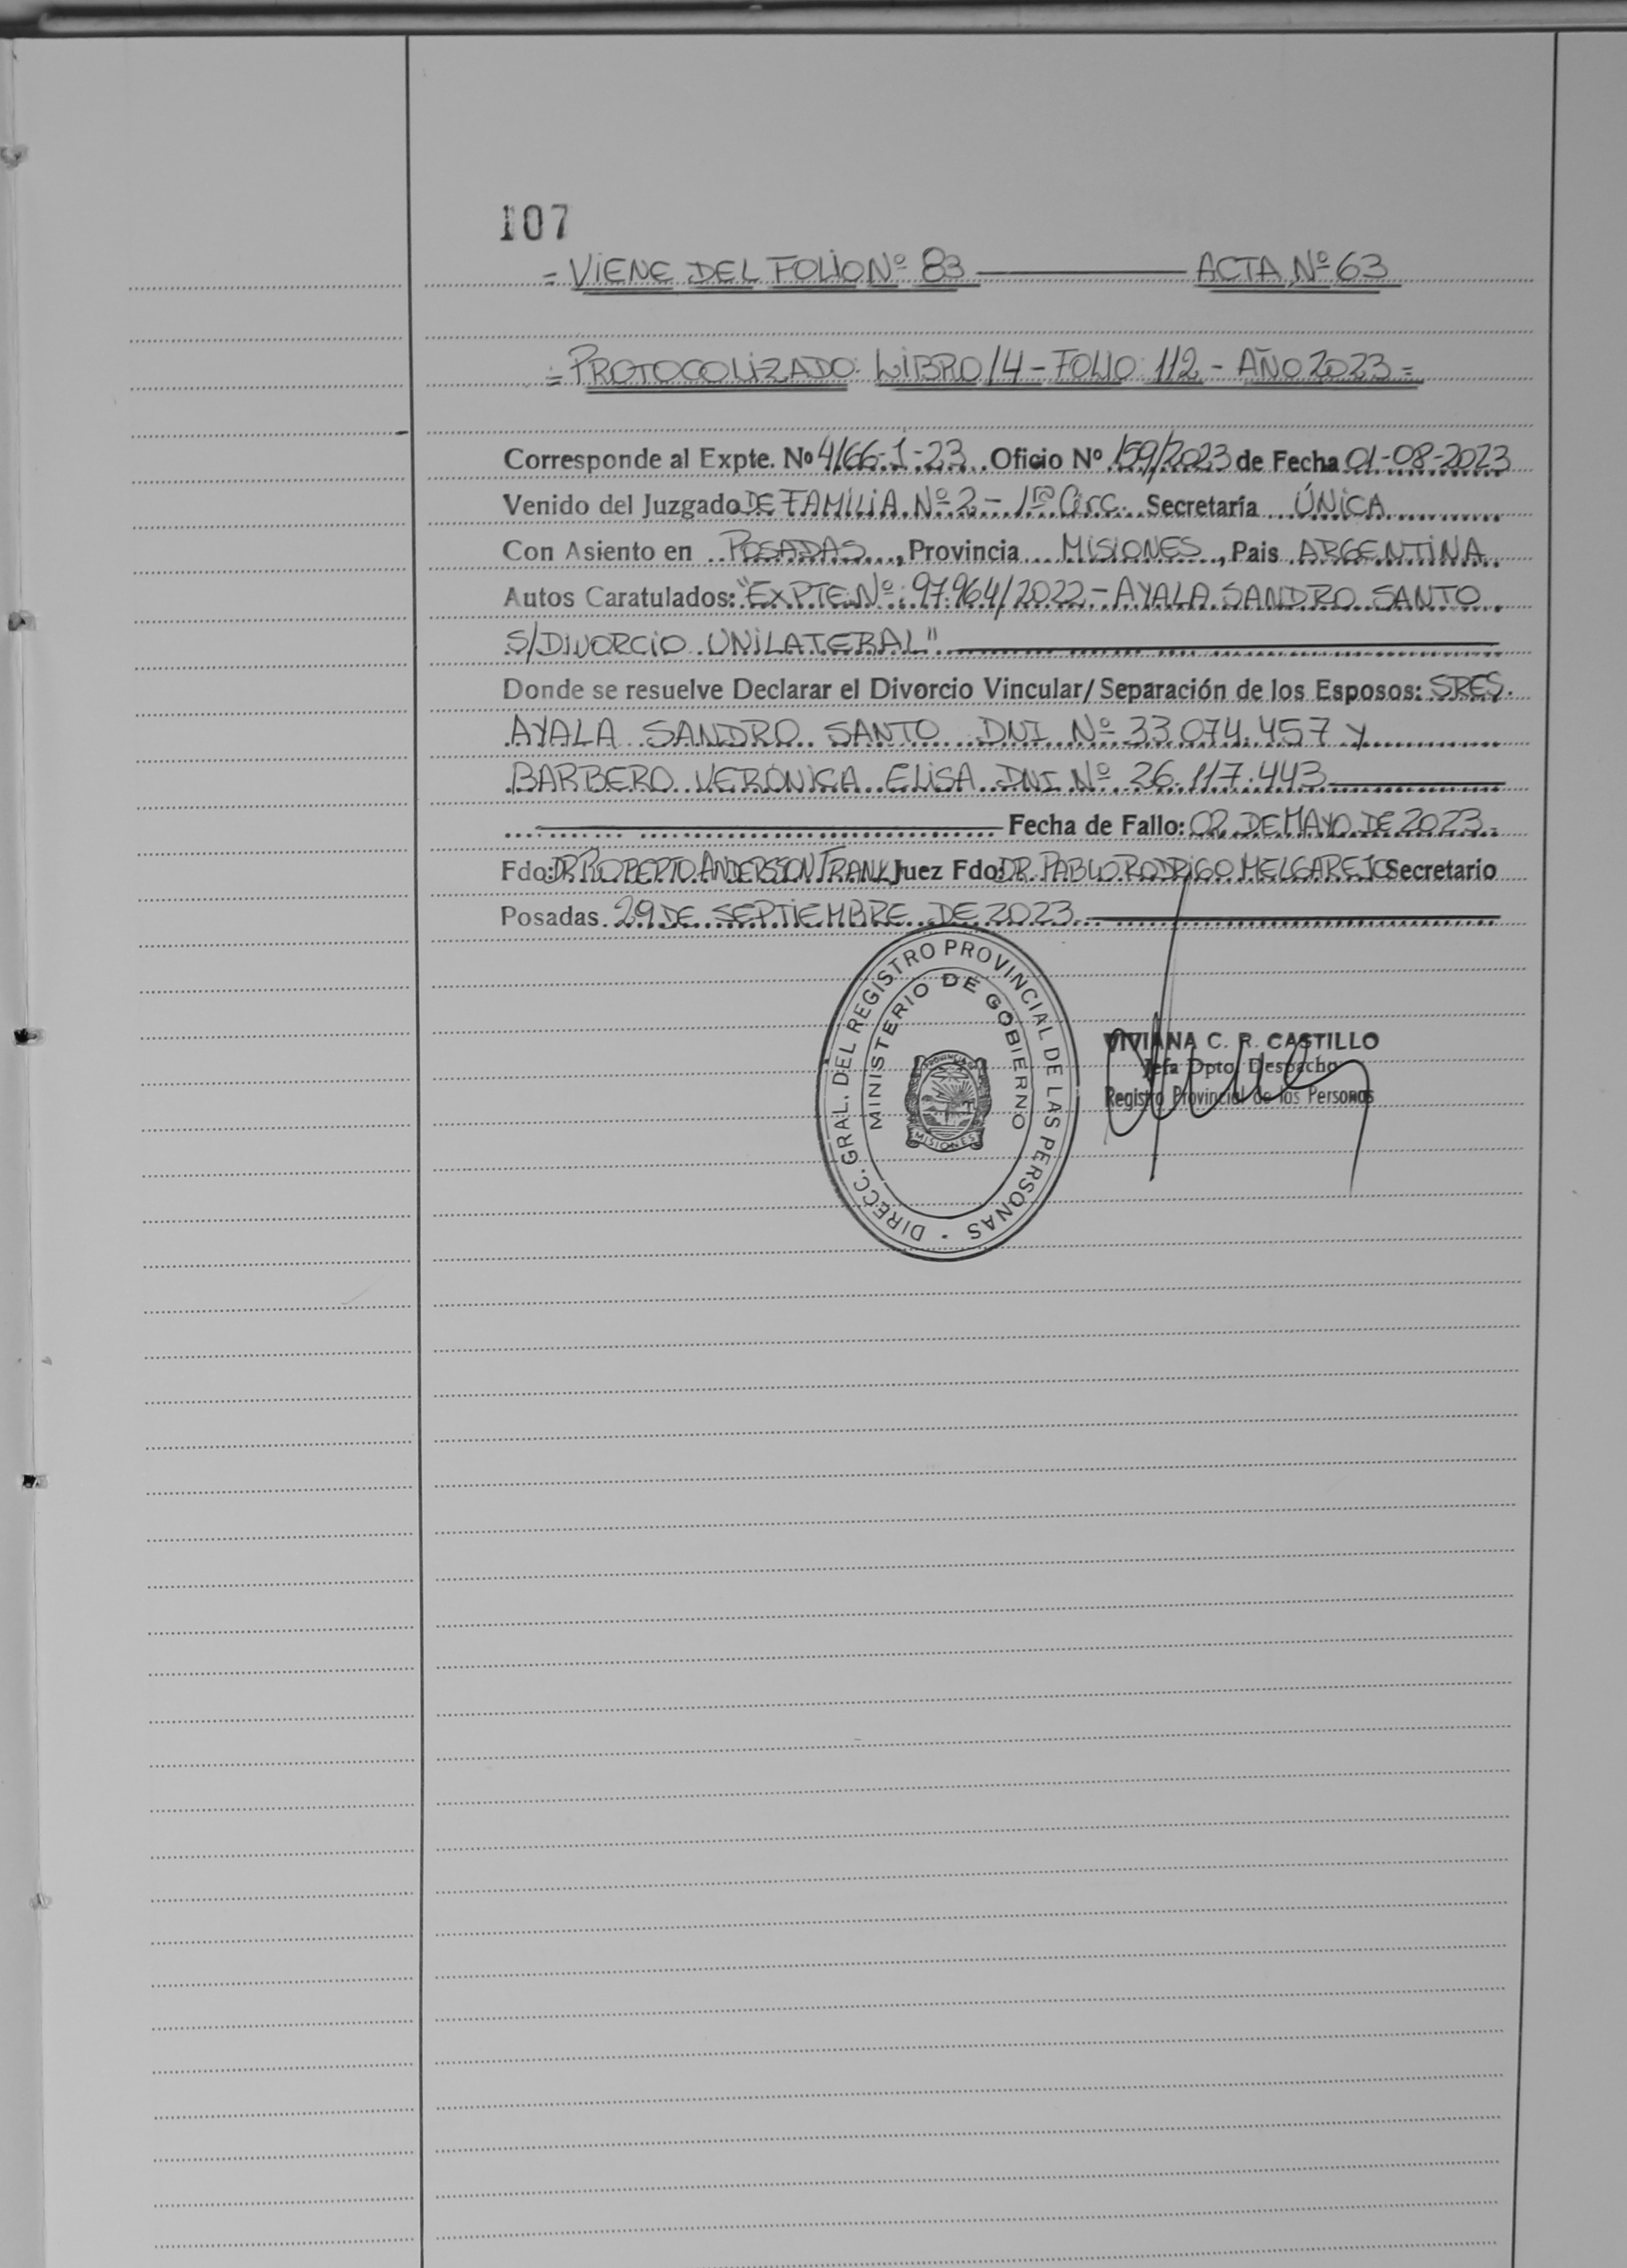 107
= VIENE DEL FOLIO Nº 83 ——— ACTA Nº 63
= PROTOCOLIZADO: LIBRO 14 - FOLIO: 112 - AÑO 2023 =
Corresponde al Expte. Nº 4166-J-23 Oficio Nº 159/2023 de Fecha 01-08-2023
Venido del Juzgado DE FAMILIA Nº 2 - 1ra Circ. Secretaría ÚNICA
Con Asiento en POSADAS, Provincia MISIONES, Pais ARGENTINA
Autos Caratulados: "EXPTE Nº: 97.964/2022 - AYALA SANDRO SANTO
S/DIVORCIO UNILATERAL"
Donde se resuelve Declarar el Divorcio Vincular/Separación de los Esposos: SRES.
AYALA SANDRO SANTO DNI Nº 33.074.457 y
BARBERO VERÓNICA ELISA DNI Nº 26.117.443
Fecha de Fallo: 02 DE MAYO DE 2023.
Fdo: DR. ROBERTO ANDERSSON FRANK Juez Fdo: DR. PABLO RODRIGO MELGAREJO Secretario
Posadas 29 DE SEPTIEMBRE DE 2023.
DIRECC. GRAL. DEL REGISTRO PROVINCIAL DE LAS PERSONAS
MINISTERIO DE GOBIERNO
PROVINCIA
MISIONES
VIVIANA C. R. CASTILLO
Jefa Dpto. Despacho
Registro Provincial de las Personas